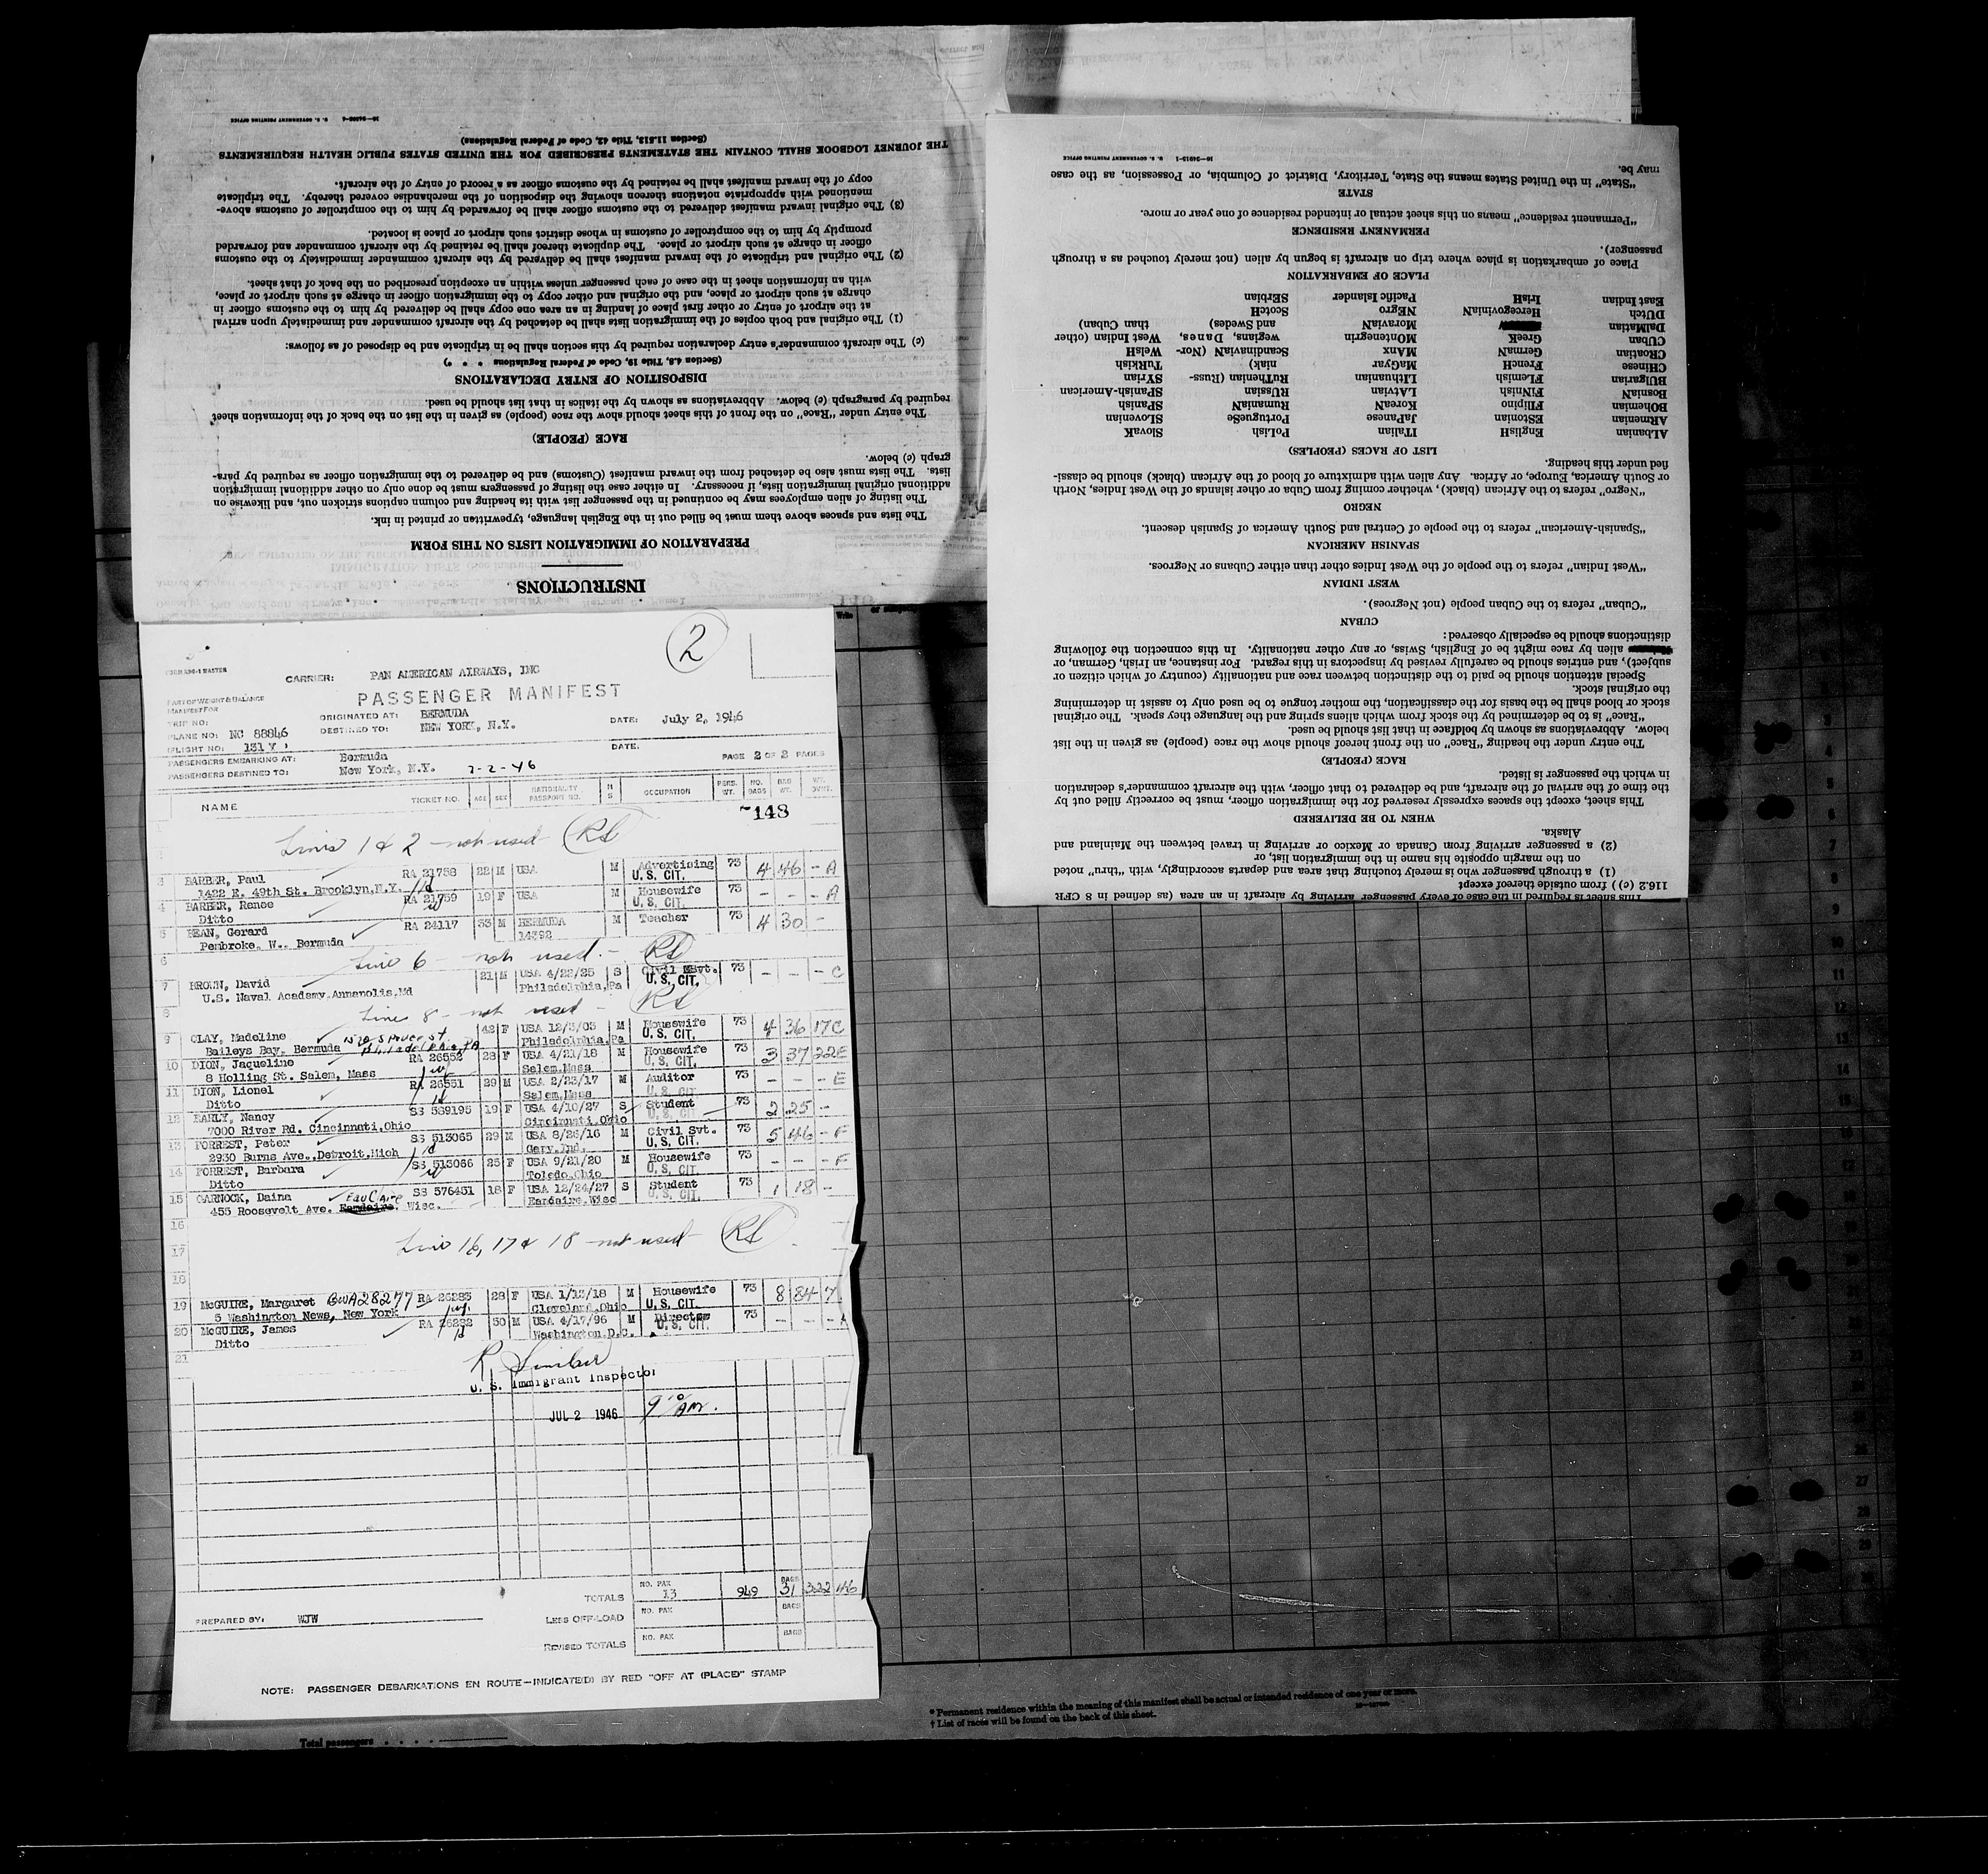 INSTRUCTIONS
PREPARATION OF IMMIGRATION LISTS ON THIS FORM
The lists and spaces above them must be filled out in the English language, typewritten or printed in ink.
The listing of alien employees may be continued in the passenger list with its heading and column captions stricken out, and likewise on
additional original immigration lists, if necessary. In either case the listing of passengers must be done only on other additional immigration
lists. The lists must also be detached from the inward manifest (Customs) and be delivered to the immigration officer as required by para-
graph (c) below.
RACE (PEOPLE)
The entry under "Race" on the front of this sheet should show the race (people) as given in the list on the back of the information sheet
required by paragraph (c) below. Abbreviations as shown by the italics in that list should be used.
DISPOSITION OF ENTRY DECLARATIONS
(Section 4.3, Title 19, Code of Federal Regulations * * *)
(c) The aircraft commander's entry declaration required by this section shall be in triplicate and be disposed of as follows:
(1) The original and both copies of the immigration lists shall be detached by the aircraft commander and immediately upon arrival
at the airport of entry or other first place of landing in an area one copy shall be delivered by him to the customs officer in
charge at such airport or place, and the original and other copy to the immigration officer in charge at such airport or place,
with an information sheet in the case of each passenger unless within an exception prescribed on the back of that sheet.
(2) The original and triplicate of the inward manifest shall be delivered by the aircraft commander immediately to the customs
officer in charge at such airport or place. The duplicate thereof shall be retained by the aircraft commander and forwarded
promptly by him to the comptroller of customs in whose district such airport or place is located.
(3) The original inward manifest delivered to the customs officer shall be forwarded by him to the comptroller of customs above-
mentioned with appropriate notations thereon showing the disposition of the merchandise covered thereby. The triplicate
copy of the inward manifest shall be retained by the customs officer as a record of entry of the aircraft.
THE JOURNEY LOGBOOK SHALL CONTAIN THE STATEMENTS PRESCRIBED FOR THE UNITED STATES PUBLIC HEALTH REQUIREMENTS
(Section 11.513, Title 42, Code of Federal Regulations)
U. S. GOVERNMENT PRINTING OFFICE
This sheet is required in the case of every passenger arriving by aircraft in an area (as defined in 8 CFR
116.2 (c)) from outside thereof except
(1) a through passenger who is merely touching that area and departs accordingly, with "thru" noted
on the margin opposite his name in the immigration list, or
(2) a passenger arriving from Canada or Mexico or arriving in travel between the Mainland and
Alaska.
WHEN TO BE DELIVERED
This sheet, except the spaces expressly reserved for the immigration officer, must be correctly filled out by
the time of the arrival of the aircraft, and be delivered to that officer, with the aircraft commander's declaration
in which the passenger is listed.
RACE (PEOPLE)
The entry under the heading "Race" on the front hereof should show the race (people) as given in the list
below. Abbreviations as shown by boldface in that list should be used.
"Race" is to be determined by the stock from which aliens spring and the language they speak. The original
stock or blood shall be the basis for the classification, the mother tongue to be used only to assist in determining
the original stock.
Special attention should be paid to the distinction between race and nationality (country of which citizen or
subject), and entries should be carefully revised by inspectors in this regard. For instance, an Irish, German, or
alien by race might be of English, Swiss, or any other nationality. In this connection the following
distinctions should be especially observed:
CUBAN
"Cuban" refers to the Cuban people (not Negroes).
WEST INDIAN
"West Indian" refers to the people of the West Indies other than either Cubans or Negroes.
SPANISH AMERICAN
"Spanish-American" refers to the people of Central and South America of Spanish descent.
NEGRO
"Negro" refers to the African (black), whether coming from Cuba or other islands of the West Indies, North
or South America, Europe, or Africa. Any alien with admixture of blood of the African (black) should be classi-
fied under this heading.
LIST OF RACES (PEOPLES)
ALbanian EnglisH ITalian PoLish SlovaK
ARmenian EStonian JaPanese PortugueSe SLovenian
BOhemian FIlipino KoreaN RumaniaN SPanish
BosniaN FiNnish LAtvian RUssian SPanish-American
BUlgarian FLemish LIthuanian RuThenian (Russ- SYrian
CHinese FrencH MaGyar niak) TuRkish
CRoatian GermaN MAnx ScandinaviaN (Nor- WelsH
CUban GreeK MOntenegrin wegians, Danes, West Indian (other
DalMatian MoraviaN and Swedes) than Cuban)
DUtch HercegoviniaN NEgro ScotcH
East Indian IrisH Pacific Islander SErbian
PLACE OF EMBARKATION
Place of embarkation is place where trip on aircraft is begun by alien (not merely touched as a through
passenger).
PERMANENT RESIDENCE
"Permanent residence" means on this sheet actual or intended residence of one year or more.
STATE
"State" in the United States means the State, Territory, District of Columbia, or Possession, as the case
may be.
U. S. GOVERNMENT PRINTING OFFICE
2
CARRIER: PAN AMERICAN AIRWAYS, INC
PASSENGER MANIFEST
PART OF WEIGHT & BALANCE
MANIFEST FOR
TRIP NO:
ORIGINATED AT: BERMUDA DATE: July 2, 1946
PLANE NO: NC 88846 DESTINED TO: NEW YORK, N.Y.
FLIGHT NO: 131 Y DATE:
PASSENGERS EMBARKING AT: Bermuda PAGE 2 OF 2 PAGES
PASSENGERS DESTINED TO: New York, N.Y. 7-2-46
NAME TICKET NO. AGE SEX NATIONALITY PASSPORT NO. M S OCCUPATION PERS. WT. NO. BAGS BAG WT. WT. OVWT.
148
Lines 1 & 2 - not used
3 BARBER, Paul RA 21758 22 M USA M Advertising 73 4 46 - A
1422 E. 49th St. Brooklyn,N.Y. U. S. CIT.
4 BARBER, Renee RA 21759 19 F USA M Housewife 73 - - - A
Ditto U. S. CIT.
5 BEAN, Gerard RA 24117 33 M BERMUDA M Teacher 73 4 30 -
Pembroke, W., Bermuda 14392
6 Line 6 - not used -
7 BROWN, David 21 M USA 4/22/25 S Civil Svt. 73 - - - C
U.S. Naval Academy,Annapolis,Md Philadelphia,Pa U. S. CIT.
8 Line 8 - not used -
9 CLAY, Madeline 42 F USA 12/3/03 M Housewife 73 4 36 17 C
Baileys Bay, Bermuda Philadelphia,Pa U. S. CIT.
10 DION, Jaqueline RA 26552 28 F USA 4/21/18 M Housewife 73 3 37 22 E
8 Holling St. Salem, Mass Salem,Mass U. S. CIT.
11 DION, Lionel RA 26551 29 M USA 2/23/17 M Auditor 73 - - - E
Ditto Salem,Mass U. S. CIT.
12 EARLY, Nancy SS 589195 19 F USA 4/10/27 S Student 73 2 25 -
7000 River Rd. Cincinnati,Ohio Cincinnati,Ohio U. S. CIT.
13 FORREST, Peter SS 513065 29 M USA 8/26/16 M Civil Svt. 73 5 46 - F
2930 Burns Ave.,Detroit,Mich Gary,Ind. U. S. CIT.
14 FORREST, Barbara SS 513066 25 F USA 9/21/20 M Housewife 73 - - - F
Ditto Toledo,Ohio U. S. CIT.
15 GARNOCK, Daina Eau Claire SS 576451 18 F USA 12/24/27 S Student 73 1 18 -
455 Roosevelt Ave. Eandaire, Wisc. Eandaire,Wisc U. S. CIT.
16
17 Line 16, 17 & 18 - not used -
18
19 McGUIRE, Margaret BWA28277 RA 26283 28 F USA 1/13/18 M Housewife 73 8 84 7
5 Washington News, New York Cleveland,Ohio U. S. CIT.
20 McGUIRE, James RA 26282 50 M USA 4/17/96 M Director 73 - - -
Ditto Washington,D.C. U. S. CIT.
21
U. S. Immigrant Inspector
JUL 2 1946 9 10 AM.
TOTALS NO. PAX 13 949 BAGS 31 322 46
PREPARED BY: WJW LESS OFF-LOAD NO. PAX BAGS
REVISED TOTALS NO. PAX BAGS
NOTE: PASSENGER DEBARKATIONS EN ROUTE—INDICATE(D) BY RED "OFF AT (PLACE)" STAMP
* Permanent residence within the meaning of this manifest shall be actual or intended residence of one year or more.
† List of races will be found on the back of this sheet.
Total passengers . . . .